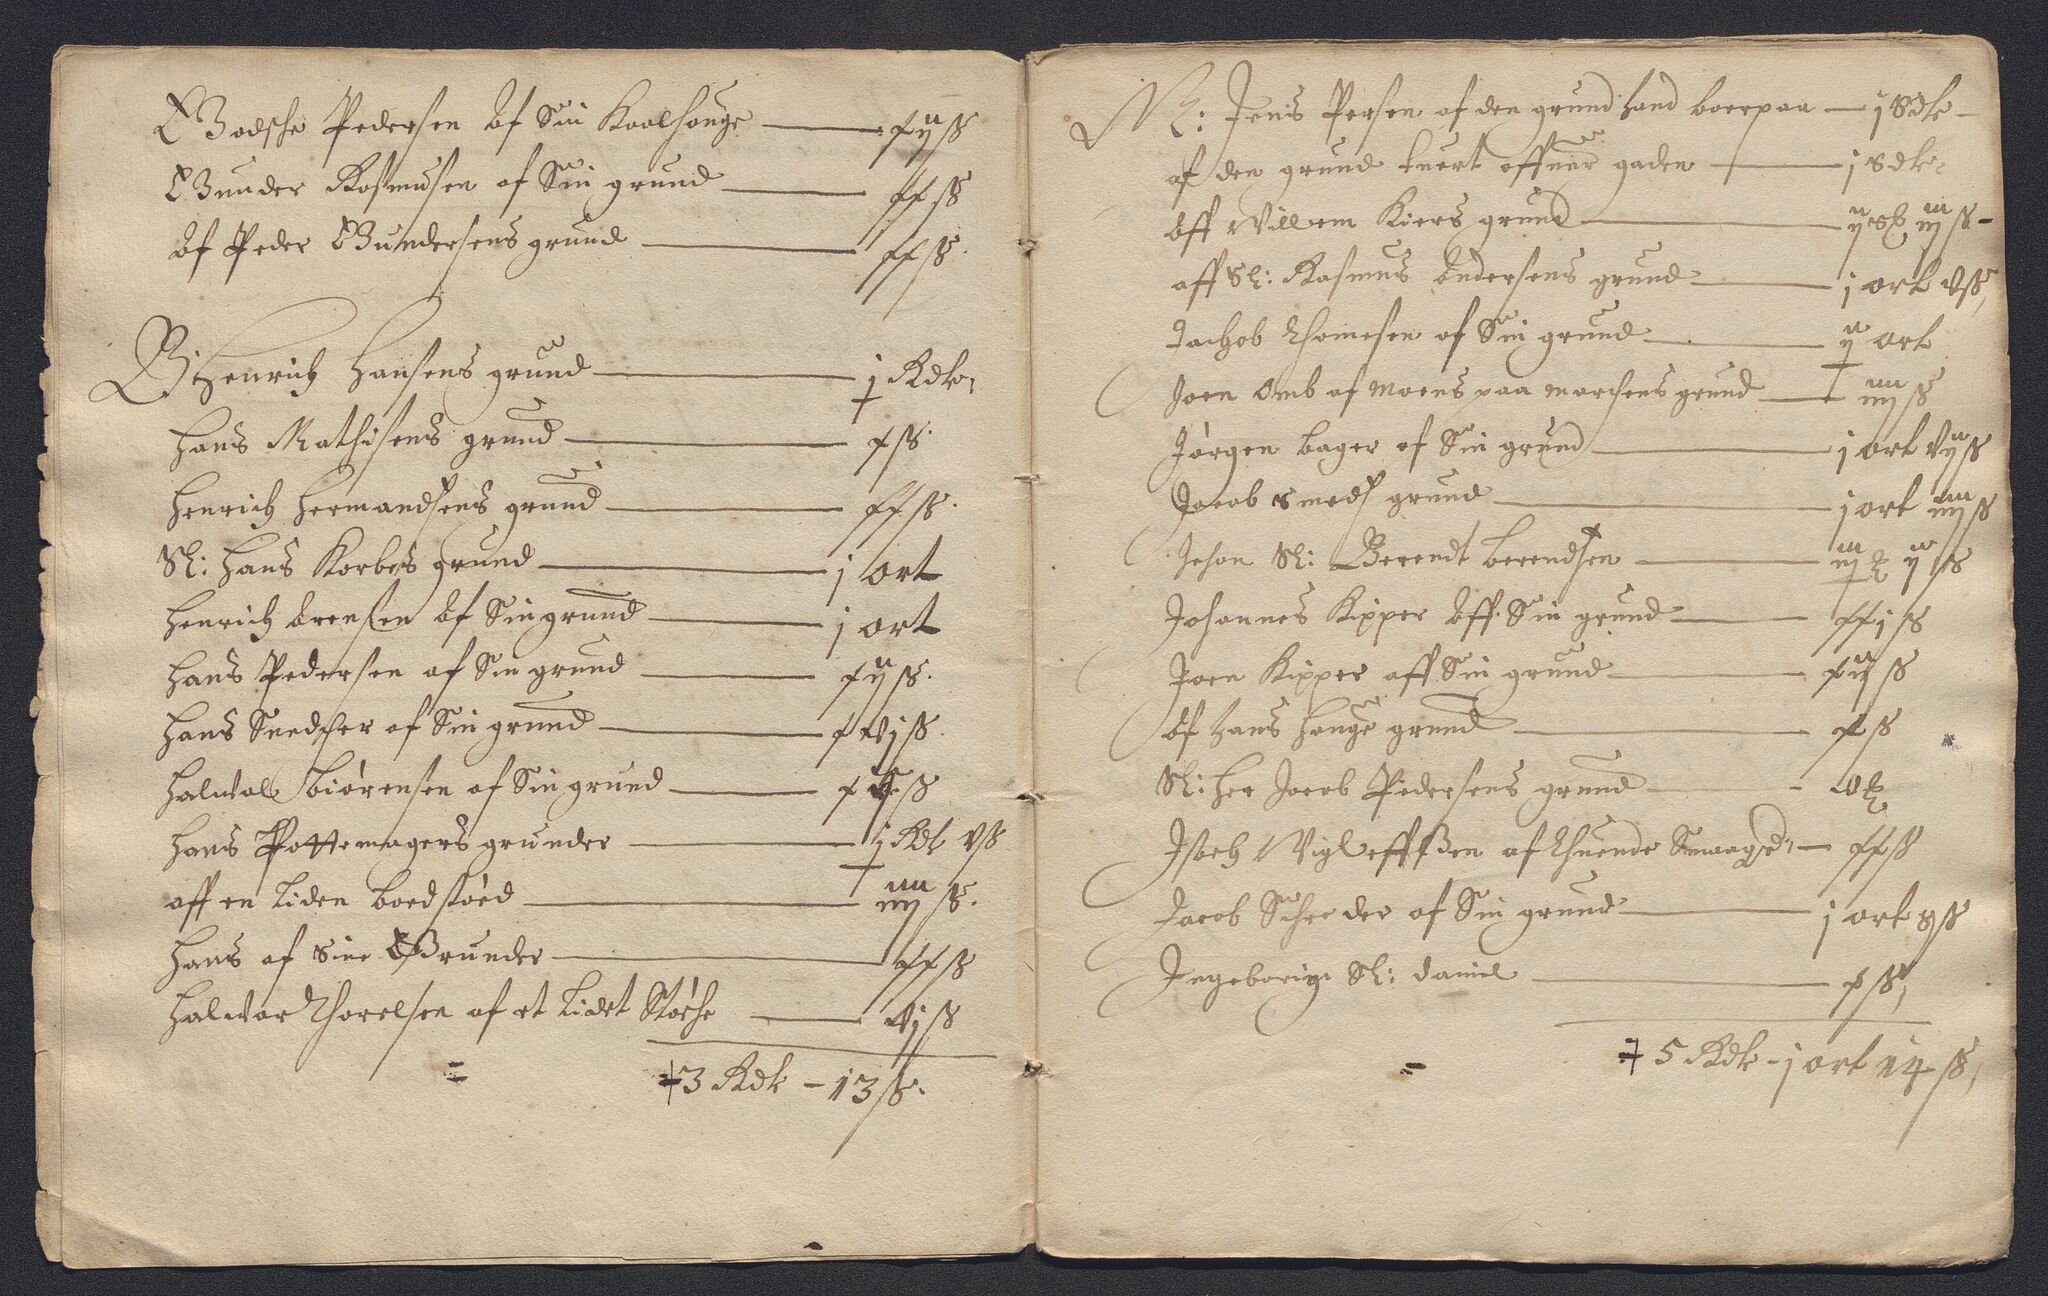 Godsche Pedersen Af Sin Kaalhauge — xijß
Gunder Rasmusen af Sin grund — xxß
Af Peder Gundersens grund — xxß.
Henrich Hansens grund — j Rdr.
Hans Mathisens grund — xß.
Henrich Hermandsens grund — xxß.
Sl: Hans Korbes grund — j ort
Henrich Arensen Af Sin grund — j ort
Hans Pedersen af Sin grund — xijß.
Hans Snedcher af Sin grund — xvjß.
Halvol Biørensen af Sin grund — xß
Hans Pottemagers grunder — j Rdl vß
aff en Liden boedstøed — iiijß.
Hans af sine Grunder — xxß
Halvor Thorelsen af et Lidet Støche — vjß
3 Rdr – 13ß.
Jens Persen af den grund hand boer paa — j Rdr –
af den grund tuert offuer gaden — j Rdr.
Aff Villem Kiers grund — ij iijß –
aff Sl: Rasmus Andersens grund — j ort vß
Jachob Thomesen af Sin grund — ij ort
Joen af Moens paa grund — iiijß
Jørgen bager af Sin grund — j ort vijß
Jacob Smeds grund — j ort iiijß
Johan Sl: Berendt berendsen — iij ijß
Johannes Kipper Aff Sin grund — xxjß
Joen Kipper aff Sin grund — xijß
Af hans hauge grund — xß
Sl: Her Jacob Pedersens grund —
Isach Vigleffßen af — xxß
Jacob Schreder af Sin grund — j ort 8ß
Ingeborig Sl: daniel — xß
5 Rdr – j ort 14ß